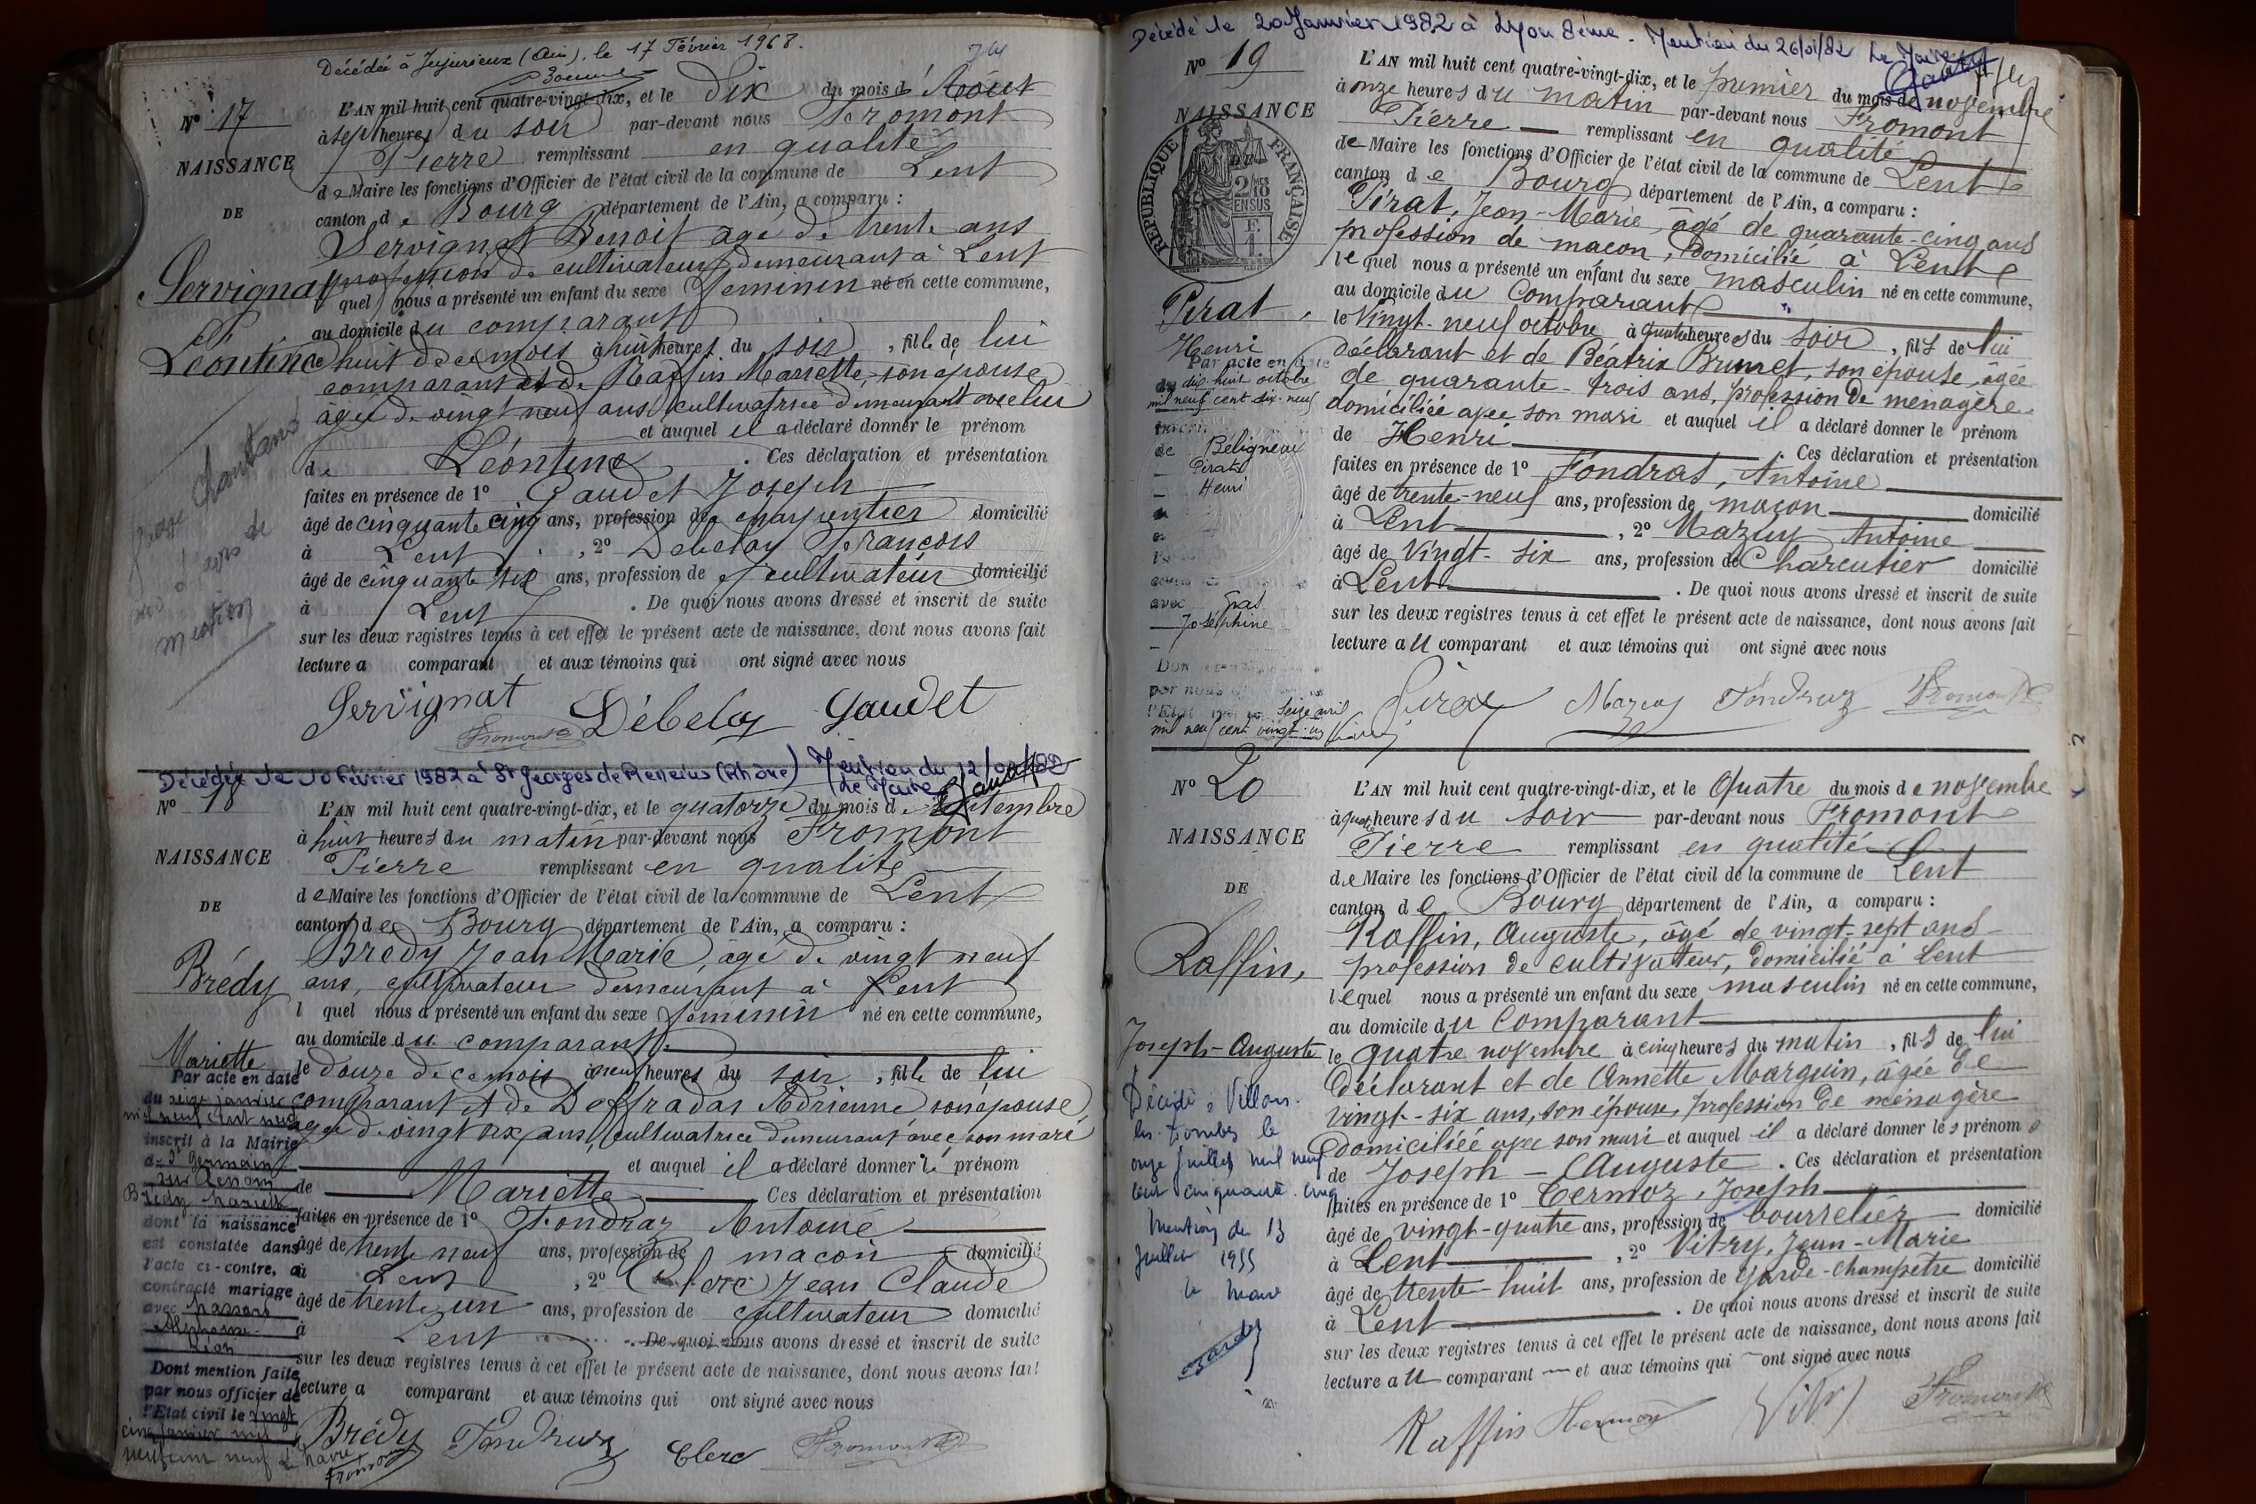 Décédée à Jujurieux (Ain), le 17 Février 1968.
N° 17
L'AN mil huit cent quatre-vingt-dix, et le dix du mois d'Août
à sept heures du soir par-devant nous Fromont
Pierre remplissant en qualité
NAISSANCE
de Maire les fonctions d'Officier de l'état civil de la commune de Lent
DE
canton de Bourg département de l'Ain, a comparu :
Servignat Benoit agé de trente ans
profession de cultivateur demeurant à Lent
Servignat
quel nous a présenté un enfant du sexe féminin né en cette commune,
au domicile du comparant
Léontine
le huit de ce mois à huit heures du soir, fille de lui
comparant et de Raffin Mariette, son épouse
âgée de vingt neuf ans cultivatrice demeurant avec lui
et auquel il a déclaré donner le prénom
de Léontine. Ces déclaration et présentation
faites en présence de 1° Gaudet Joseph
âgé de cinquante cinq ans, profession de charpentier domicilié
à Lent, 2° Debelay François
âgé de cinquante six ans, profession de cultivateur domicilié
à Lent. De quoi nous avons dressé et inscrit de suite
sur les deux registres tenus à cet effet le présent acte de naissance, dont nous avons fait
lecture a comparant et aux témoins qui ont signé avec nous
mention
Servignat Débelay Gaudet
Fromont
Décédée le 10 Février 1982 à St Georges de Reneins (Rhône) Mention du 12/02/82
Le Maire
N° 18
L'AN mil huit cent quatre-vingt-dix, et le quatorze du mois de Septembre
à huit heures du matin par-devant nous Fromont
NAISSANCE
Pierre remplissant en qualité
de Maire les fonctions d'Officier de l'état civil de la commune de Lent
DE
canton de Bourg département de l'Ain, a comparu :
Brédy Jean Marie, âgé de vingt neuf
Brédy
ans, cultivateur demeurant à Lent
l quel nous a présenté un enfant du sexe féminin né en cette commune,
au domicile du comparant
Mariette
le douze de ce mois à neuf heures du soir, fille de lui
comparant et de Deffradas Adrienne son épouse
agée de vingt six ans, cultivatrice demeurant avec son mari
et auquel il a déclaré donner le prénom
de Mariette Ces déclaration et présentation
faites en présence de 1° Fondraz Antoine
âgé de trente neuf ans, profession de maçon domicilié
à Lent, 2° Clerc Jean Claude
âgé de trente un ans, profession de cultivateur domicilié
à Lent. De quoi nous avons dressé et inscrit de suite
sur les deux registres tenus à cet effet le présent acte de naissance, dont nous avons fait
lecture a comparant et aux témoins qui ont signé avec nous
Par acte en date
du seize janvier
mil neuf cent neuf
inscrit à la Mairie
de St Germain
sur Renom
Brédy Mariette
dont la naissance
est constatée dans
l'acte ci-contre, a
contracté mariage
avec
Alphonse
Léon
Dont mention faite
par nous officier de
l'Etat civil le vingt
cinq janvier mil
neuf cent neuf Le Maire
Fromont
Brédy Fondraz Clerc Fromont
Décédé le 20 Janvier 1982 à Lyon 8ème. Mention du 26/01/82 Le Maire
N° 19
L'AN mil huit cent quatre-vingt-dix, et le premier du mois de novembre
à onze heures du matin par-devant nous Fromont
NAISSANCE
Pierre remplissant en qualité
de Maire les fonctions d'Officier de l'état civil de la commune de Lent
DE
canton de Bourg département de l'Ain, a comparu :
RÉPUBLIQUE FRANÇAISE
2/10 MES EN SUS
Pirat, Jean-Marie, âgé de quarante-cinq ans
profession de maçon, domicilié à Lent
lequel nous a présenté un enfant du sexe masculin né en cette commune,
au domicile du Comparant
Pirat,
le Vingt-neuf octobre à quatre heures du soir, fils de lui
Henri
déclarant et de Béatrix Brunet, son épouse, âgée
de quarante-trois ans, profession de ménagère
domiciliée avec son mari et auquel il a déclaré donner le prénom
de Henri. Ces déclaration et présentation
faites en présence de 1° Fondras, Antoine
âgé de trente-neuf ans, profession de maçon domicilié
à Lent, 2° Mazuy Antoine
âgé de Vingt-six ans, profession de Charcutier domicilié
à Lent. De quoi nous avons dressé et inscrit de suite
sur les deux registres tenus à cet effet le présent acte de naissance, dont nous avons fait
lecture au comparant et aux témoins qui ont signé avec nous
Par acte en date
du dix huit octobre
mil neuf cent dix-neuf
de Beligneux
Pirat
Henri
avec Gras
Joséphine
par nous
l'Etat seize avril
mil neuf cent vingt-un
Pirat Mazuy Fondraz Fromont
N° 20
L'AN mil huit cent quatre-vingt-dix, et le Quatre du mois de novembre
à quatre heures du soir par-devant nous Fromont
NAISSANCE
Pierre remplissant en qualité
de Maire les fonctions d'Officier de l'état civil de la commune de Lent
DE
canton de Bourg département de l'Ain, a comparu :
Raffin, Auguste, âgé de vingt-sept ans
Raffin,
profession de cultivateur, domicilié à Lent
lequel nous a présenté un enfant du sexe masculin né en cette commune,
au domicile du Comparant
Joseph-Auguste
le quatre novembre à cinq heures du matin, fils de lui
déclarant et de Annette Marguin, âgée de
vingt-six ans, son épouse, profession de ménagère
domiciliée avec son mari et auquel il a déclaré donner les prénoms
de Joseph-Auguste. Ces déclaration et présentation
faites en présence de 1° Cermoz, Joseph
âgé de vingt-quatre ans, profession de bourrelier domicilié
à Lent, 2° Vitry, Jean-Marie
âgé de trente-huit ans, profession de garde-champêtre domicilié
à Lent. De quoi nous avons dressé et inscrit de suite
sur les deux registres tenus à cet effet le présent acte de naissance, dont nous avons fait
lecture au comparant et aux témoins qui ont signé avec nous
Décédé à Villars
les-Dombes le
onze juillet mil neuf
cent cinquante-cinq
Mention du 13
Juillet 1955
le Maire
Raffin Fromont